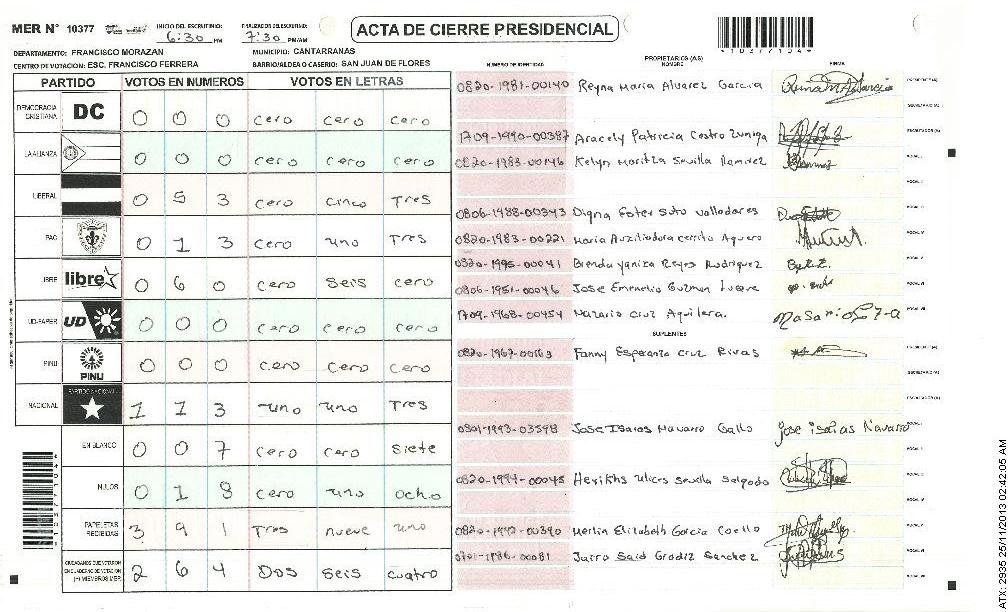 MER N° 10377
INICIO DEL ESCRUTINIO: 6:30 PM
FINALIZACION DEL ESCRUTINIO: 7:30 PM/AM
ACTA DE CIERRE PRESIDENCIAL
DEPARTAMENTO: FRANCISCO MORAZAN
MUNICIPIO: CANTARRANAS
CENTRO DE VOTACION: ESC. FRANCISCO FERRERA
BARRIO/ALDEA O CASERIO: SAN JUAN DE FLORES
PARTIDO VOTOS EN NUMEROS VOTOS EN LETRAS
DEMOCRACIA CRISTIANA DC 0 0 0 cero cero cero
LA ALIANZA 0 0 0 cero cero cero
LIBERAL 0 5 3 cero cinco Tres
PAC 0 1 3 cero uno Tres
LIBRE libre 0 6 0 cero seis cero
UD-FAPER UD 0 0 0 cero cero cero
PINU PINU 0 0 0 cero cero cero
NACIONAL PARTIDO NACIONAL 1 1 3 uno uno Tres
EN BLANCO 0 0 7 cero cero siete
NULOS 0 1 8 cero uno ocho
PAPELETAS RECIBIDAS 3 9 1 Tres nueve uno
CIUDADANOS QUE VOTARON EN CUADERNO DE VOTACION (+) MIEMBROS MER 2 6 4 Dos seis cuatro
NUMERO DE IDENTIDAD
PROPIETARIOS (AS)
NOMBRE
FIRMA
0820-1981-00140 Reyna Maria Alvarez Garcia
1709-1990-00387 Aracely Patricia Castro Zuniga
0820-1983-00146 Kelyn Maritza Sevilla Ramirez
0806-1988-00343 Digna Ester Soto Valladares
0820-1983-00221 Maria Auxiliadora cerrito Aguero
0820-1995-00041 Brenda Yaniza Reyes Rodriguez
0806-1951-00046 Jose Emenelio Guzman Luque
1709-1968-00454 Nazario Cruz Aguilera.
SUPLENTES
0820-1967-00163 Fanny Esperanza cruz Rivas
0801-1993-03598 Jose Isaias Navarro Gallo Jose isaias Navarro
0820-1994-00045 Ulices Sevilla Salgado
0820-1992-00390 Merlin Elizabeth Garcia Coello
0701-1986-00081 Jairo Said Grodiz Sanchez
ATX: 2935 25/11/2013 02:42:05 AM